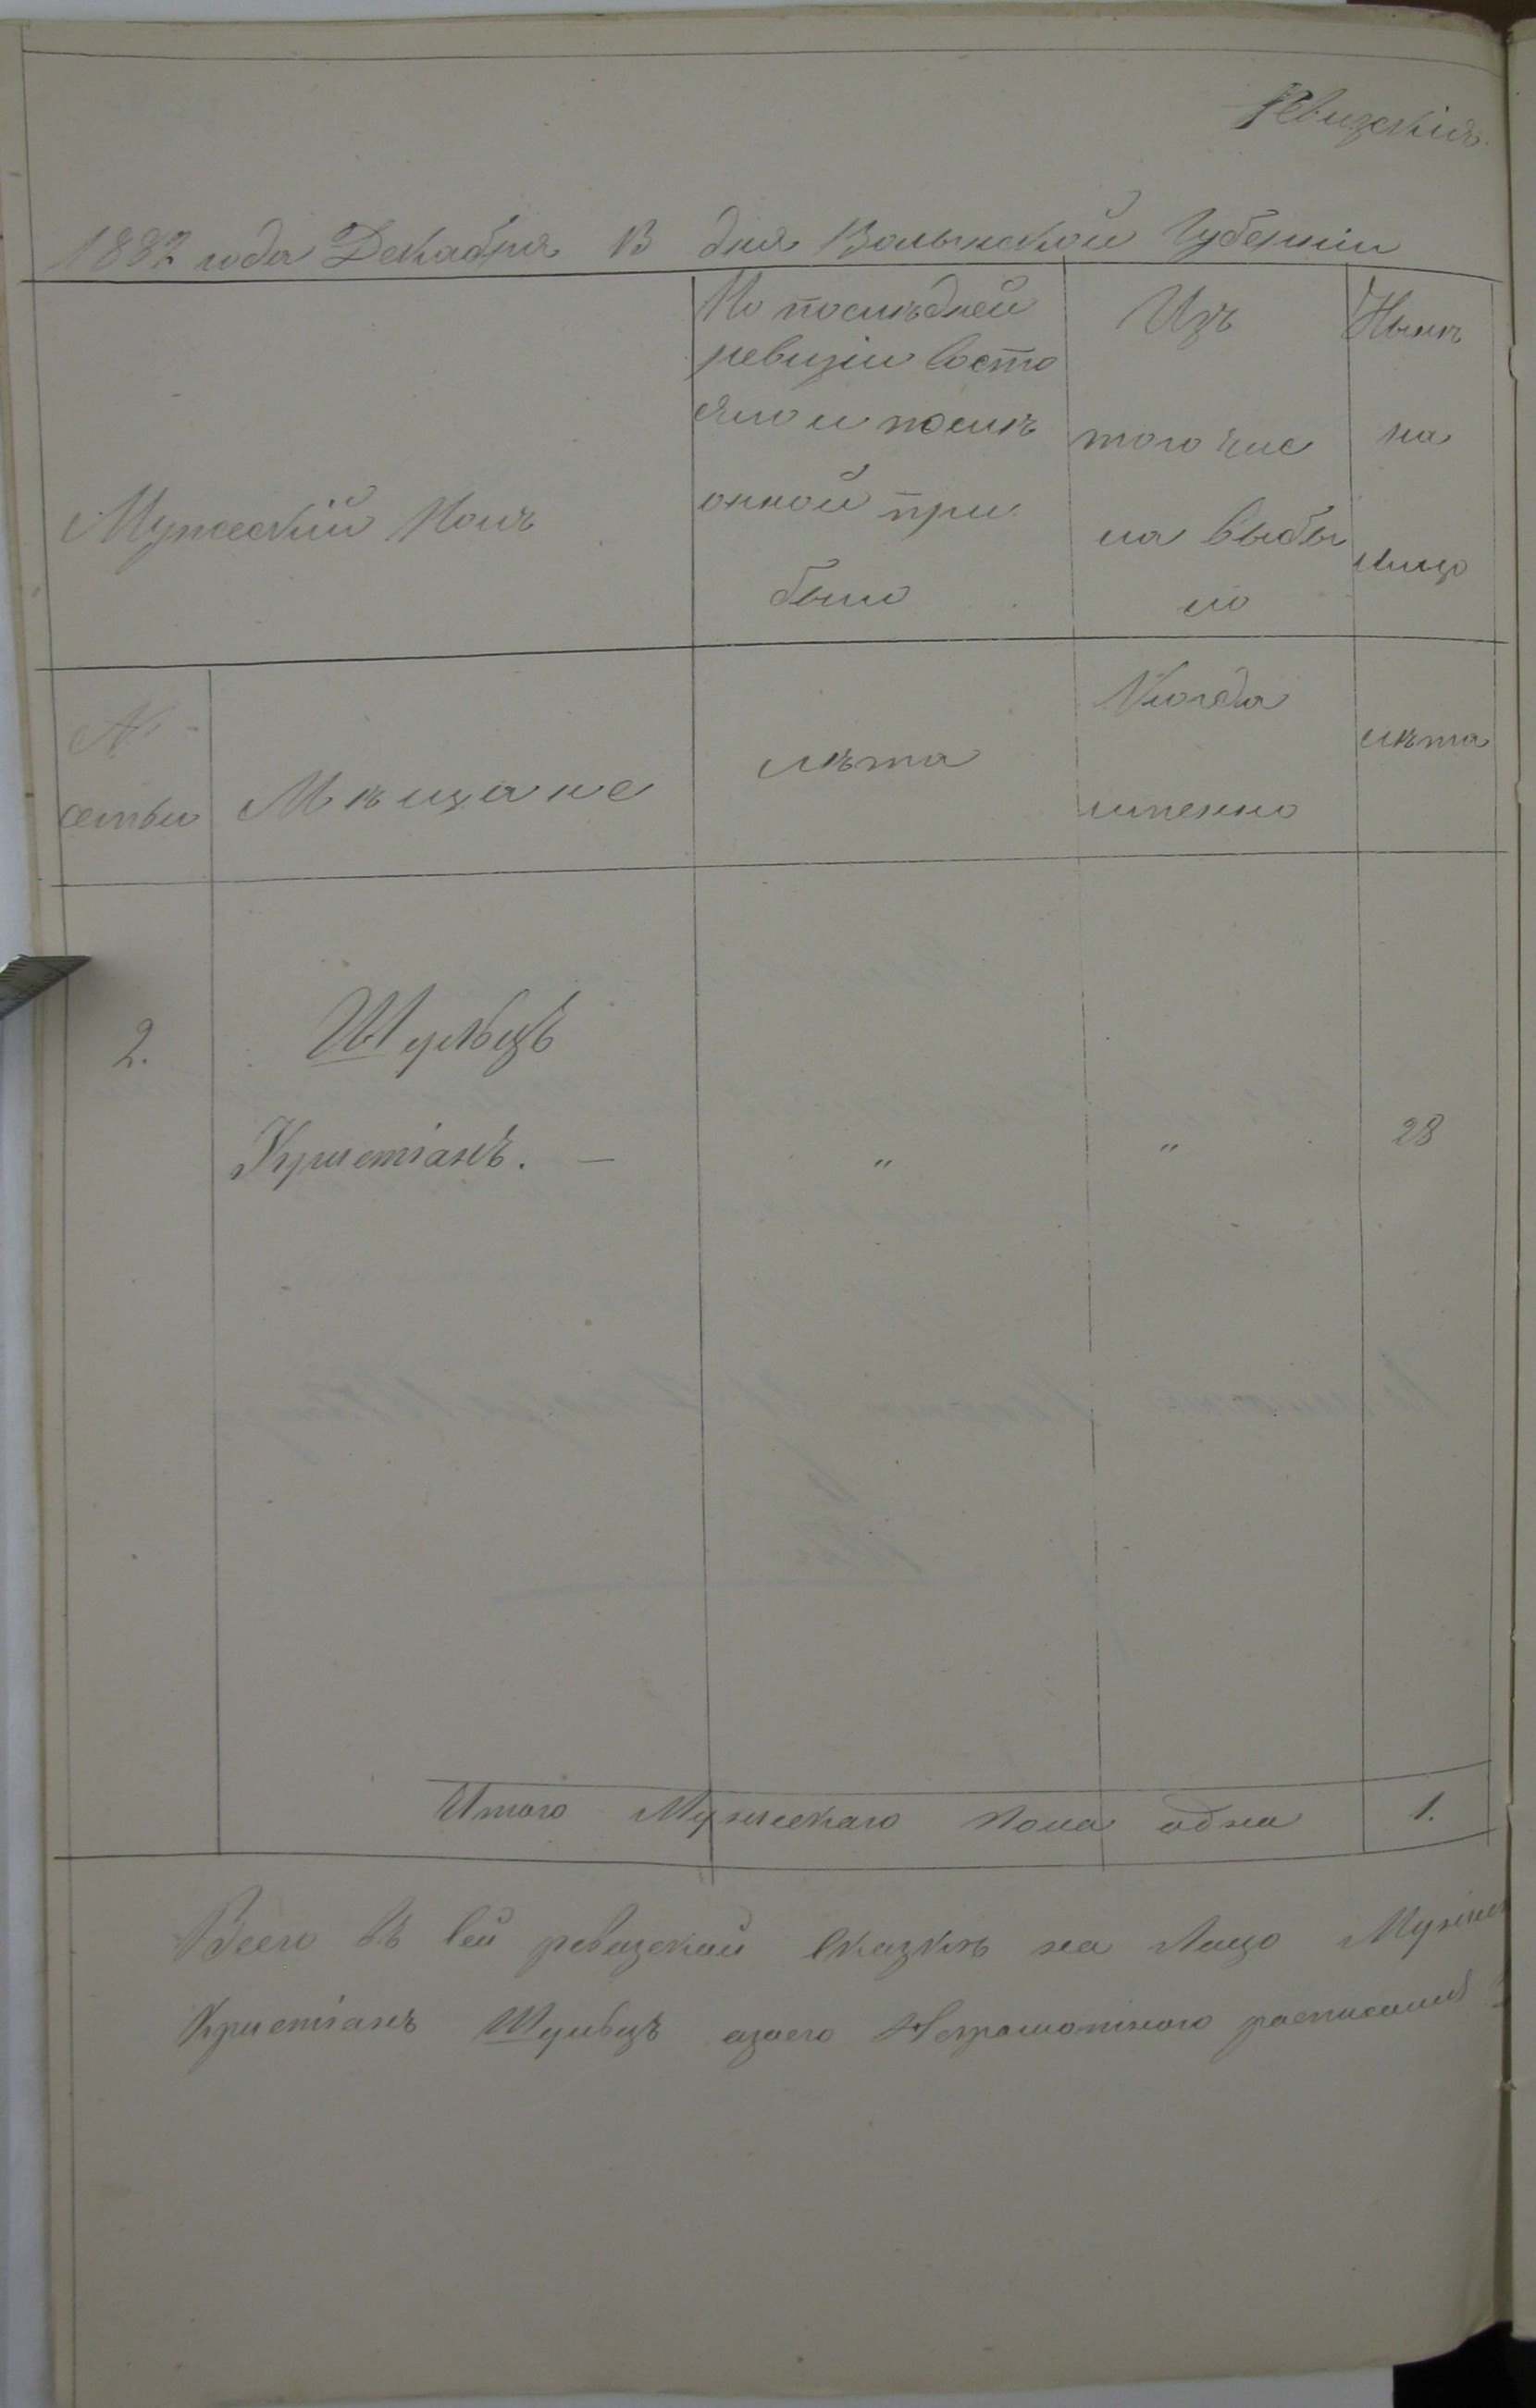 Ревизскія
1882 года Декабря 13 дня Волынской Губерніи
Мужескій Полъ
По послѣдней
ревизіи состо
яло и послѣ
оной при
было
Изъ
того чис
ла выбы
ло
Нынѣ
на
лицо
№
семьи
Мѣщане
лѣта
Когда
именно
лѣта
2.
Шульцъ
Кристіанъ. — " " 28
Итого Мужескаго пола одна 1.
Всего въ сей ревизской сказкѣ на лицо Мужес
Кристіанъ Шульцъ а за его неграмотного росписался